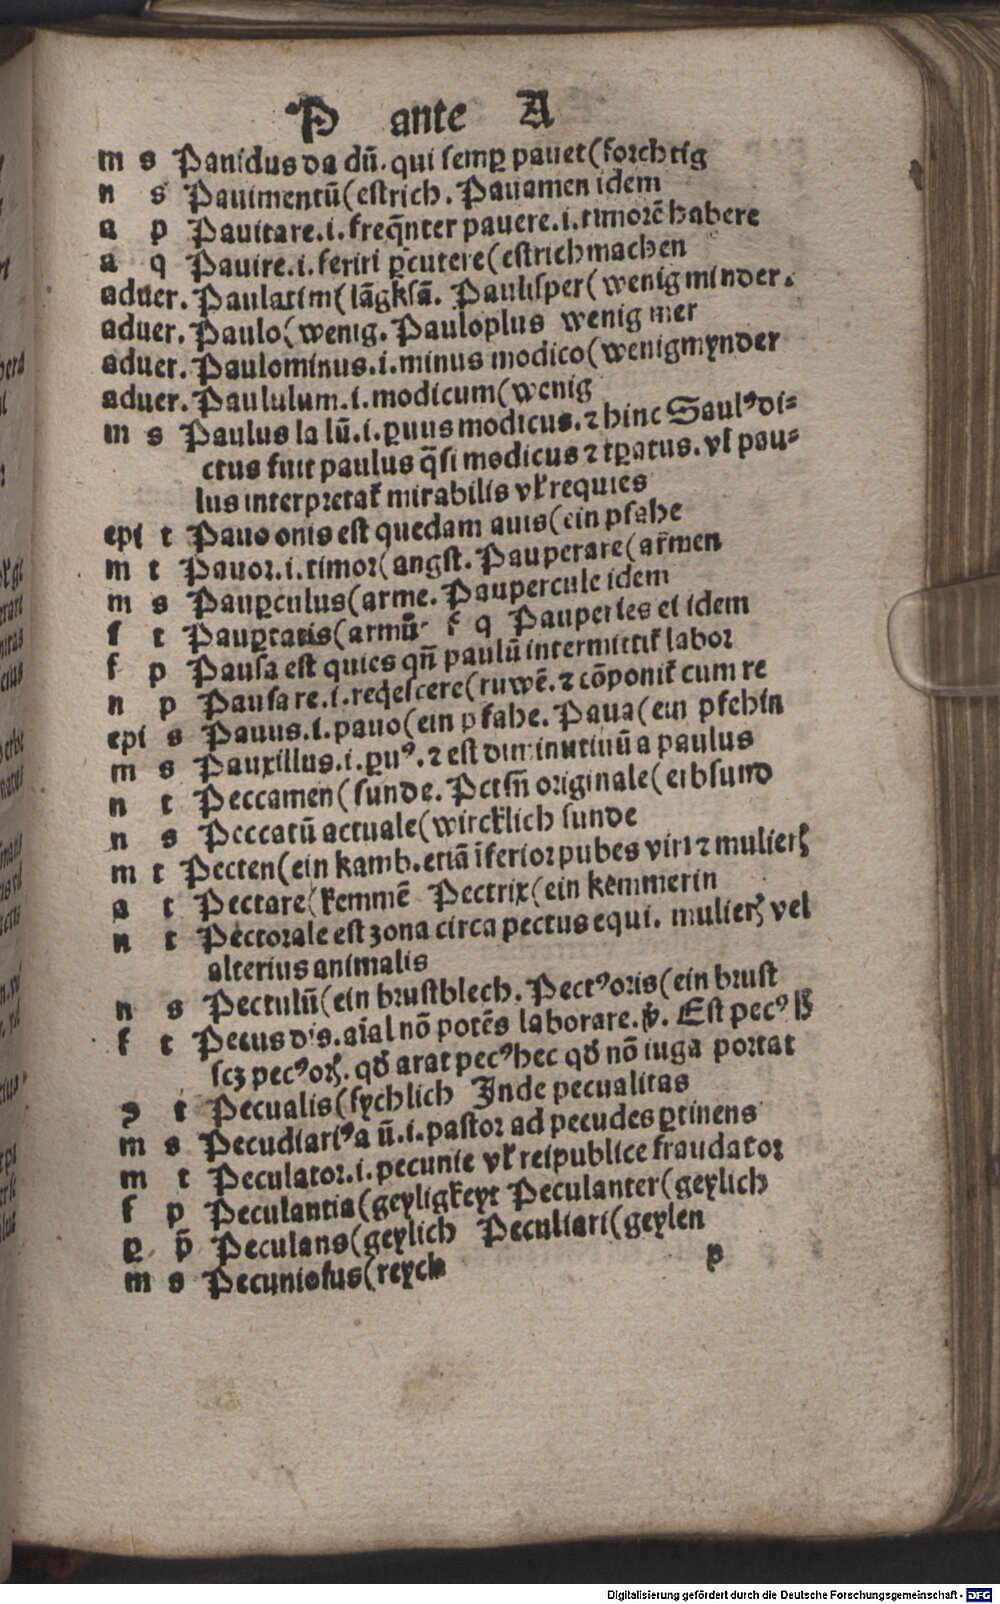 P ante A
m s Pauidus da dū. qui semꝑ pauet(forchtig
n s Pauimentū(estrich. Pauamen idem
a p Pauitare.i.freq̄nter pauere.i.timorē habere
a q Pauire.i.feriri ꝑcutere(estrich machen
aduer. Paulatim(lāgksā. Paulisper(wenig minder.
aduer. Paulo(wenig. Pauloplus wenig mer
aduer. Paulominus.i.minus modico(wenig mynder
aduer. Paululum.i.modicum(wenig
m s Paulus la lū.i.ꝑuus modicus.⁊ hinc Saulꝰ di-
ctus fuit paulus q̄si modicus ⁊ tꝑatus. vl pau-
lus interpretat̄ mirabilis vl̓ requies
epi t Pauo onis est quedam auis(ein pfahe
m t Pauor.i.timor(angst. Pauperare(ar̄men
m s Pauꝑculus(arme. Paupercule idem
f t Pauꝑtatis(armū. f q Pauperies ei idem
f p Pausa est quies qn̄ paulū intermittit̄ labor
n p Pausare.i.reqescere(ruwē.⁊ cōponit̄ cum re
epi s Pauus.i.pauo(ein pfahe. Paua(ein pfehin
m s Pauxillus.i.ꝑuꝰ.⁊ est diminutiuū a paulus
n t Peccamen(sunde. Pctm̄ originale(erbsund
n s Peccatū actuale(wircklich sunde
m t Pecten(ein kamb.etiā īferior pubes viri ⁊ mulierꝫ
a t Pectare(kemmē Pectrix(ein kemmerin
n t Pectorale est zona circa pectus equi. mulierꝫ vel
alterius animalis
n s Pectulū(ein brustblech. Pectꝰoris(ein brust
f t Pecus d's. aīal nō potēs laborare.v̓. Est pecꝰ ß
scꝫ pecꝰoꝝ. qđ arat pecꝰ hec qđ nō iuga portat
ꝯ t Pecualis(fychlich Inde pecualitas
m s Pecudiariꝰ a ū.i.pastor ad pecudes ꝑtinens
m t Peculator.i.pecunie vl̓ reipublice fraudator
f p Peculantia(geyligkeyt Peculanter(geylich
ꝑ p̄ Peculans(geylich Peculiari(geylen
m s Pecuniosus(reych
p
Digitalisierung gefördert durch die Deutsche Forschungsgemeinschaft - DFG